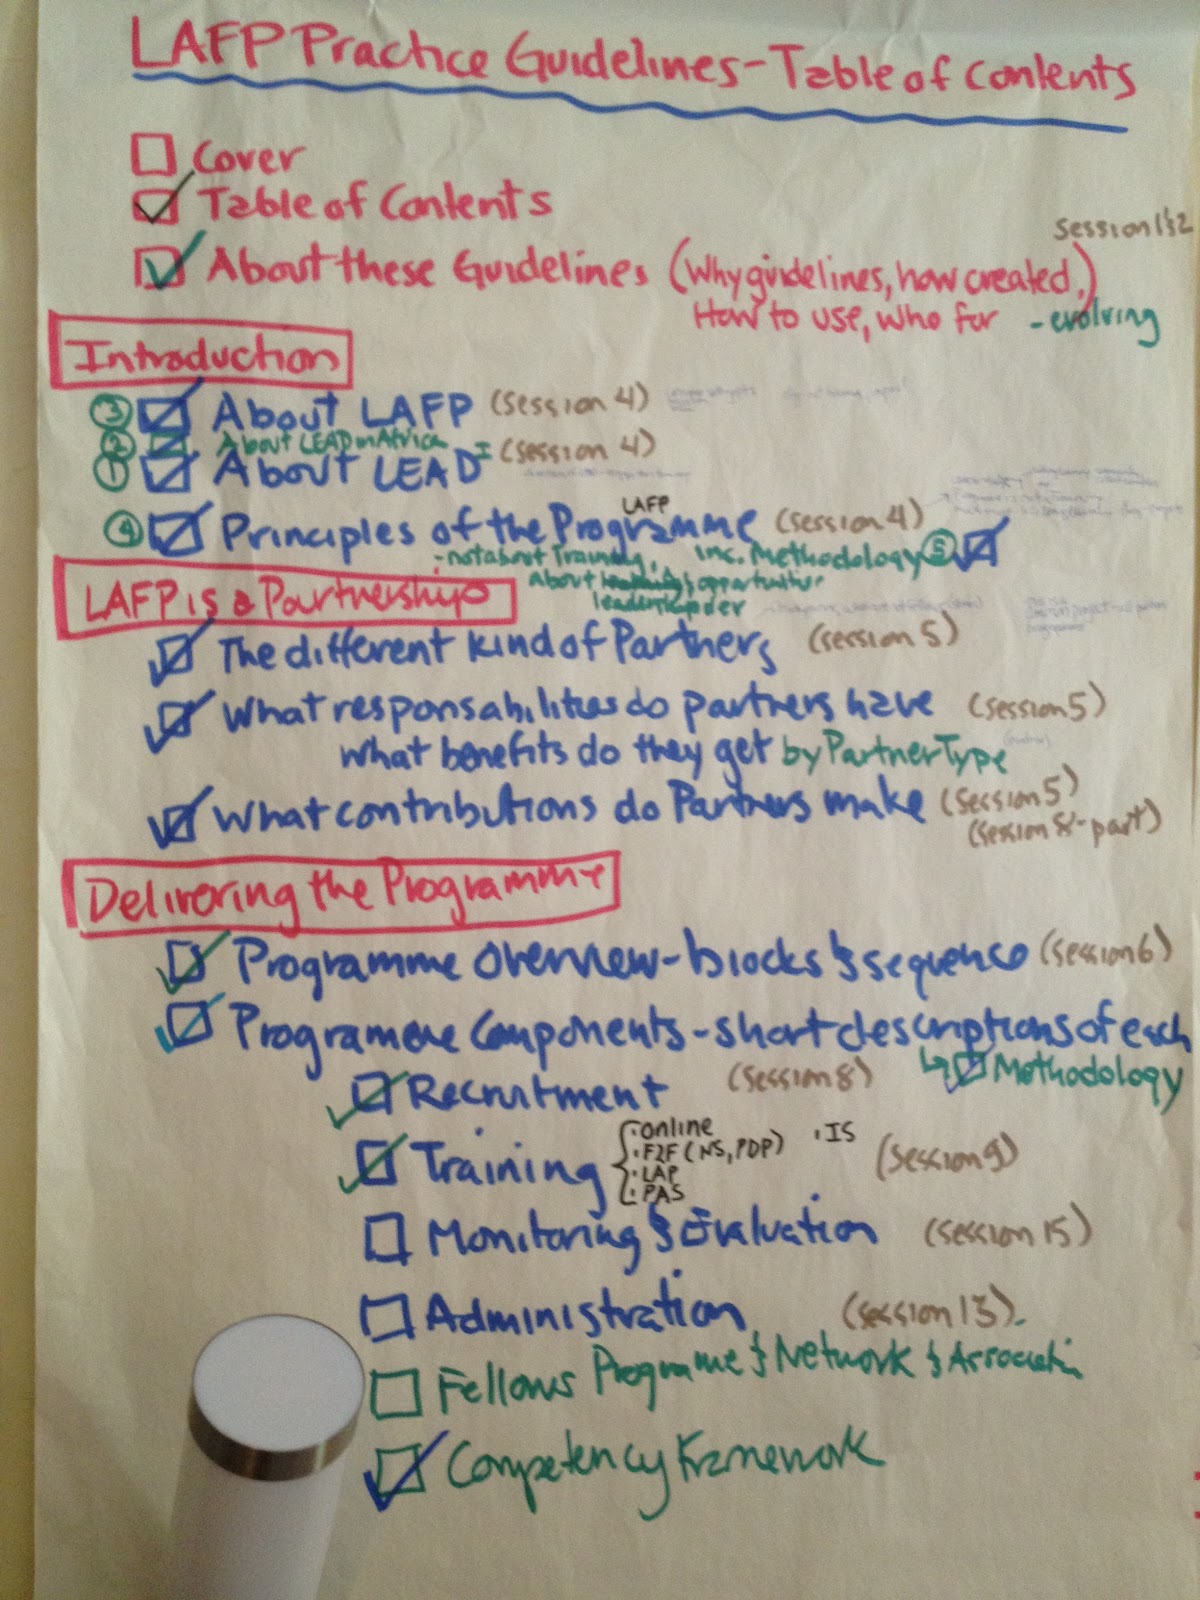 LAFP Practice Guidelines - Table of Contents
Cover
Table of Contents
Session 1 & 2
About these Guidelines (Why guidelines, how created,)
How to use, who for - evolving
Introduction
③ About LAFP (Session 4)
② About LEAD in Africa (Session 4)
① About LEAD
LAFP
④ Principles of the Programme (Session 4)
- not about Training, inc. Methodology ⑤
About & opportunities
leadership der
LAFP is a Partnership
The different kind of Partners (Session 5)
What responsabilities do partners have (Session 5)
what benefits do they get by Partner Type
What contributions do Partners make (Session 5)
(Session 8 - part)
Delivering the Programme
Programme Overview - blocks & sequence (Session 6)
Programme Components - short descriptions of each
↳ Methodology
Recruitment (Session 8)
Training { · online · IS (Session 9)
· F2F (NS, PDP)
· LAP
· PAS
Monitoring & Evaluation (Session 15)
Administration (Session 13).
Fellows Programe & Network & Associati
Competency Framework